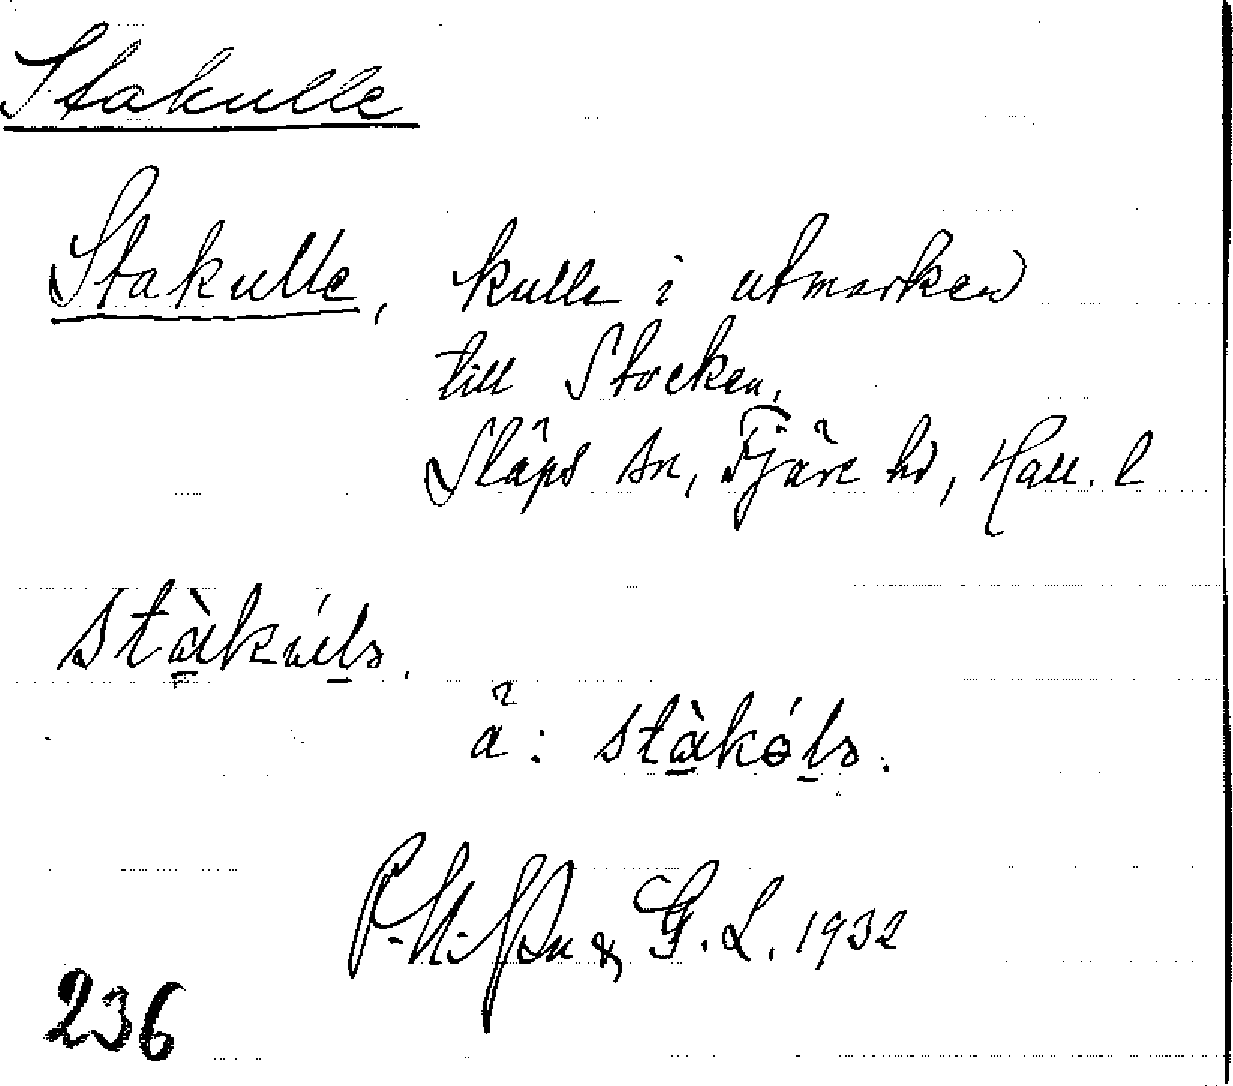 Stakulle
Stakulle, kulle i utmarken
till Stocken,
Släps sn, Fjäre hd, Hall. l
stàkúlə.
ä: stàkólə.
& G. L. 1932
236